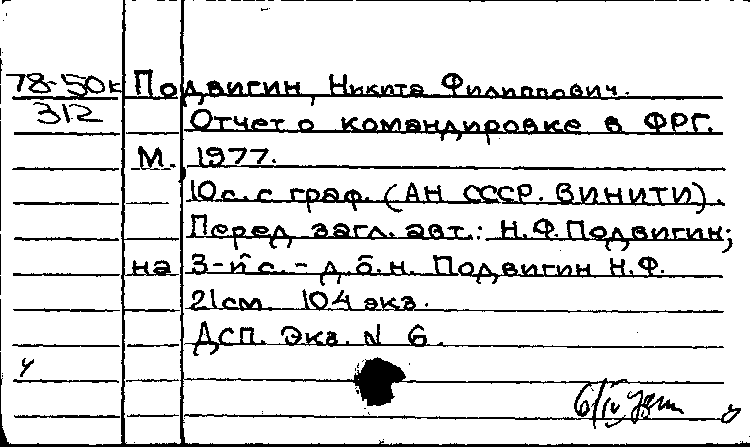 78-50к Подвигин, Никита Филиппович.
312 Отчет о командировке в ФРГ.
М. 1977.
10 с. с граф. (АН СССР. ВИНИТИ).
Перед загл. авт.: Н.Ф. Подвигин;
на 3-й с. - д.б.н. Подвигин Н.Ф.
21 см. 104 экз.
ДСП. Экз. N 6.
У
6/IV